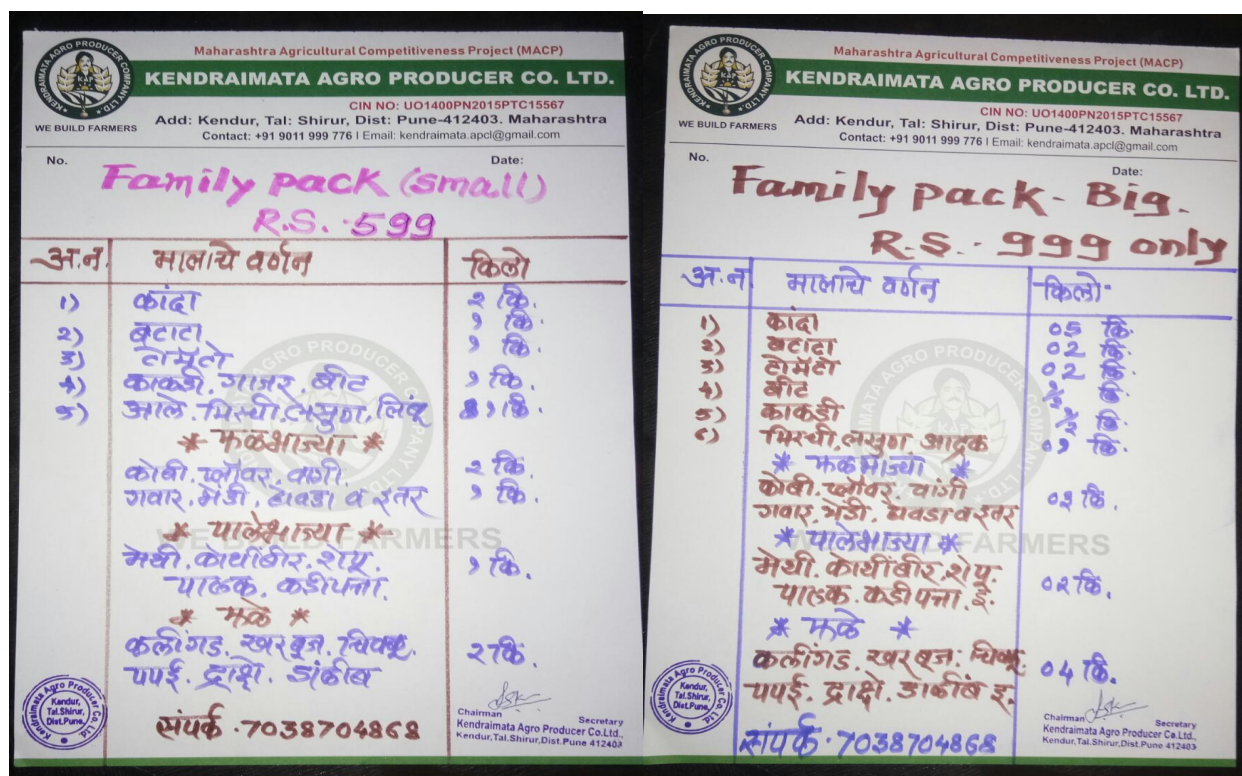 Maharashtra Agricultural Competitiveness Project (MACP)
KENDRAIMATA AGRO PRODUCER CO. LTD.
CIN NO: UO1400PN2015PTC15567
WE BUILD FARMERS
Add: Kendur, Tal: Shirur, Dist: Pune-412403. Maharashtra
Contact: +91 9011 999 776 | Email: kendraimata.apcl@gmail.com
No. Date:
Family pack (small)
R.S. 599
अ.न. मालाचे वर्णन किलो
1) कांदा २ कि.
2) बटाटा १ कि.
3) टोमॅटो १ कि.
4) काकडी. गाजर. बीट १ कि.
5) आले. मिरची. लसुण. लिंबू १ कि.
* फळभाज्या *
कोबी. फ्लॉवर. वांगी. २ कि.
गवार. भेंडी. ढोबळी व इतर १ कि.
* पालेभाज्या *
मेथी. कोथींबीर. शेपू. १ कि.
पालक. कडीपत्ता.
* फळे *
कलींगड. खरबूज. चिक्कू. २ कि.
पपई. द्राक्षे. डाळींब
संपर्क . 7038704868
Kendraimata Agro Producer Co. Ltd.
Kendur,
Tal.Shirur,
Dist.Pune.
Chairman Secretary
Kendraimata Agro Producer Co.Ltd.,
Kendur,Tal.Shirur,Dist.Pune 412403
WE BUILD FARMERS
Maharashtra Agricultural Competitiveness Project (MACP)
KENDRAIMATA AGRO PRODUCER CO. LTD.
CIN NO: UO1400PN2015PTC15567
WE BUILD FARMERS
Add: Kendur, Tal: Shirur, Dist: Pune-412403. Maharashtra
Contact: +91 9011 999 776 | Email: kendraimata.apcl@gmail.com
No. Date:
Family pack - Big.
R.S. 999 only
अ.न मालाचे वर्णन किलो
1) कांदा ०५ कि.
2) बटाटा ०२ कि.
3) टोमॅटो ०२ कि.
4) बीट ½ कि.
5) काकडी ½ कि.
६) मिरची. लसुण. आद्रक ०१ कि.
* फळभाज्या *
कोबी. फ्लॉवर. वांगी
गवार. भेंडी. व इतर ०३ कि.
* पालेभाज्या *
मेथी. कोथींबीर. शेपू.
पालक. कडीपत्ता. इ. ०२ कि.
* फळे *
कलींगड. खरबूज. चिक्कू.
पपई. द्राक्षे. डाळींब इ. ०४ कि.
संपर्क . 7038704868
Kendraimata Agro Producer Co. Ltd.
Kendur,
Tal.Shirur,
Dist.Pune.
Chairman Secretary
Kendraimata Agro Producer Co.Ltd.,
Kendur,Tal.Shirur,Dist.Pune 412403
WE BUILD FARMERS